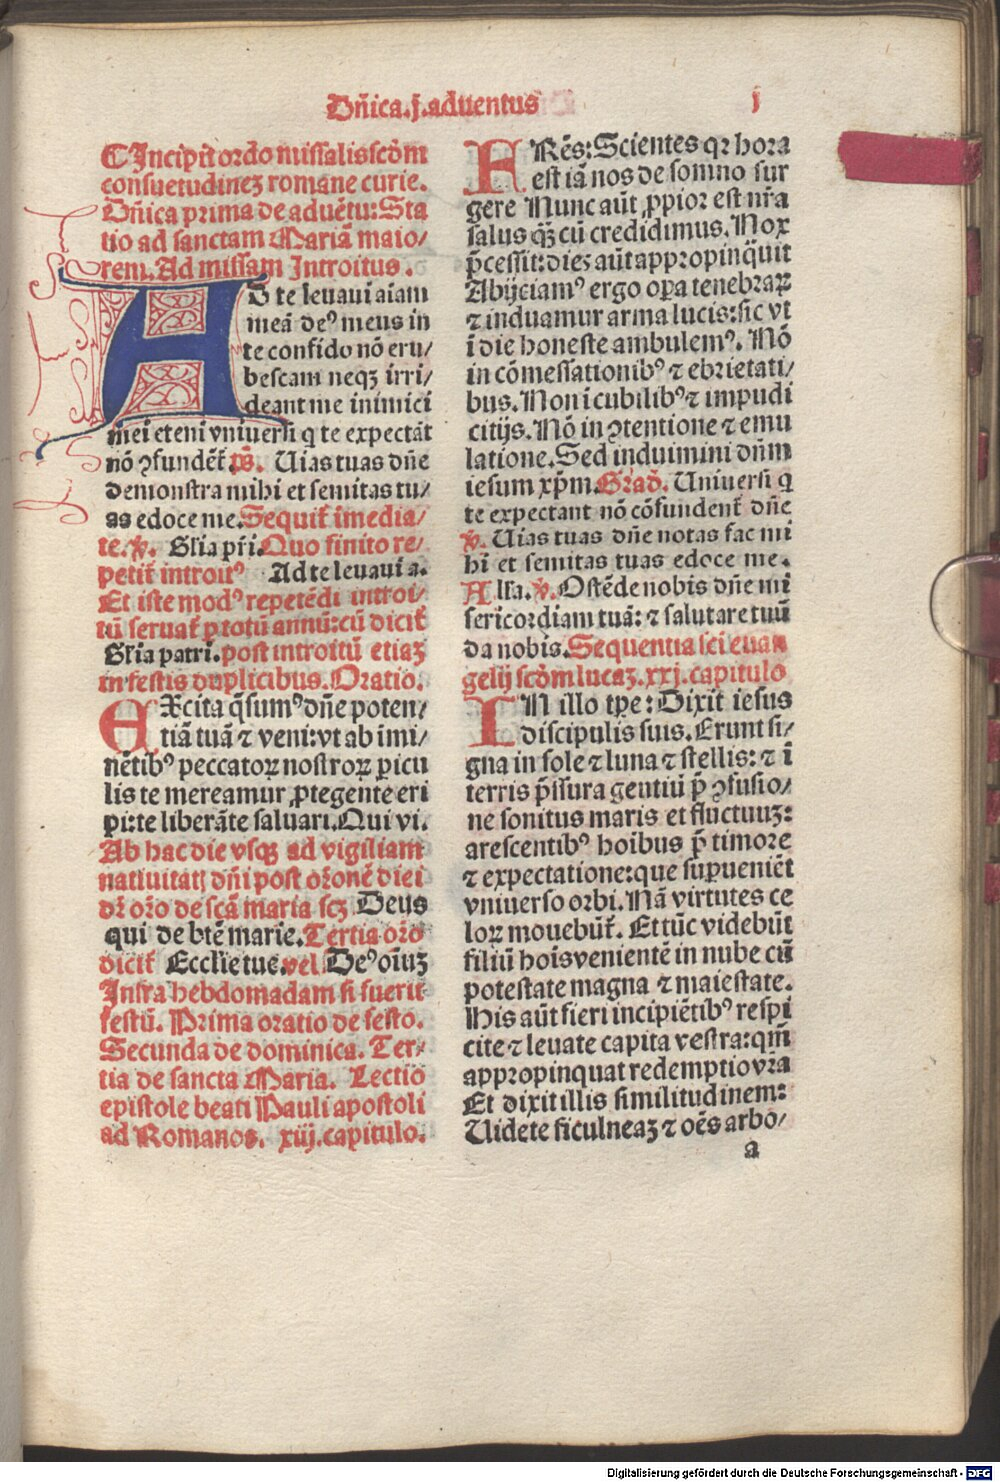 Dñica.j.aduentus
j
¶Incipit ordo missalis scḋm
consuetudinez romane curie.
Dñica prima de aduẽtu: Sta
tio ad sanctam Mariã maio/
rem. Ad missam Introitus.
AD te leuaui aĩam
meã deꝰ meus in
te confido nõ eru/
bescam neqꝫ irri/
deant me inimici
mei eteni vniuersi q te expectãt
nõ ꝯfundẽt̃. p̃s. Uias tuas dñe
demonstra mihi et semitas tu/
as edoce me. Sequit̃ imedia/
te. ꝟ. Gl̃ia pr̃i. Quo finito re/
petit̃ introitꝰ Ad te leuaui a.
Et iste modꝰ repetẽdi introi/
tũ seruat̃ ꝑ totũ annũ: cũ dicit̃
Gl̃ia patri. post introitũ etiaꝫ
in festis duplicibus. Oratio.
EXcita q̃sumꝰ dñe poten/
tiã tuã ⁊ veni: vt ab imi/
nẽtibꝰ peccatoꝝ nostroꝝ ꝑicu
lis te mereamur ꝓtegente eri
pi: te liberãte saluari. Qui vi.
Ab hac die vsqꝫ ad vigiliam
natiuitatꝭ dñi post or̃onẽ diei
dr̃ or̃o de scã maria scꝫ Deus
qui de btẽ marie. Tertia or̃o
dicit̃ Ecclie tue. vel Deꝰ oĩuꝫ
Infra hebdomadam si fuerit
festũ. Prima oratio de festo.
Secunda de dominica. Ter/
tia de sancta Maria. Lectio
epistole beati Pauli apostoli
ad Romanos. xiij. capitulo.
FRẽs: Scientes qꝛ hora
est iã nos de somno sur
gere Nunc aũt ꝓpior est nr̃a
salus qꝫ̃ cũ credidimus. Nox
p̃cessit: dies aũt appropinquit
Abijciamꝰ ergo oꝑa tenebraꝝ
⁊ induamur arma lucis: sic vt
ĩ die honeste ambulemꝰ. Nõ
in cõmessationibꝰ ⁊ ebrietati/
bus. Non i cubilibꝰ ⁊ impudi
citijs. Nõ in ꝯtentione ⁊ emu
latione. Sed induimini dñm
iesum xp̃m. Grad̃. Uniuersi q
te expectant nõ cõfundent̃ dñe
ꝟ. Uias tuas dñe notas fac mi
hi et semitas tuas edoce me.
Alla. ꝟ. Ostẽde nobis dñe mi
sericordiam tuã: ⁊ salutare tuũ
da nobis. Sequentia sci euan
gelij scḋm lucaꝫ. xxj. capitulo
IN illo tꝑe: Dixit iesus
discipulis suis. Erunt si/
gna in sole ⁊ luna ⁊ stellis: ⁊ ĩ
terris p̃ssura gentiũ p̃ ꝯfusio/
ne sonitus maris et fluctuuꝫ:
arescentibꝰ hoĩbus p̃ timore
⁊ expectatione: que suꝑueniẽt
vniuerso orbi. Nã virtutes ce
loꝝ mouebũt̃. Et tũc videbũt
filiũ hoĩs venientẽ in nube cũ
potestate magna ⁊ maiestate.
His aũt fieri incipiẽtibꝰ respi
cite ⁊ leuate capita vestra: qm̃
appropinquat redemptio vr̃a
Et dixit illis similitudinem:
Uidete ficulneaꝫ ⁊ oẽs arbo/
a
Digitalisierung gefördert durch die Deutsche Forschungsgemeinschaft - DFG